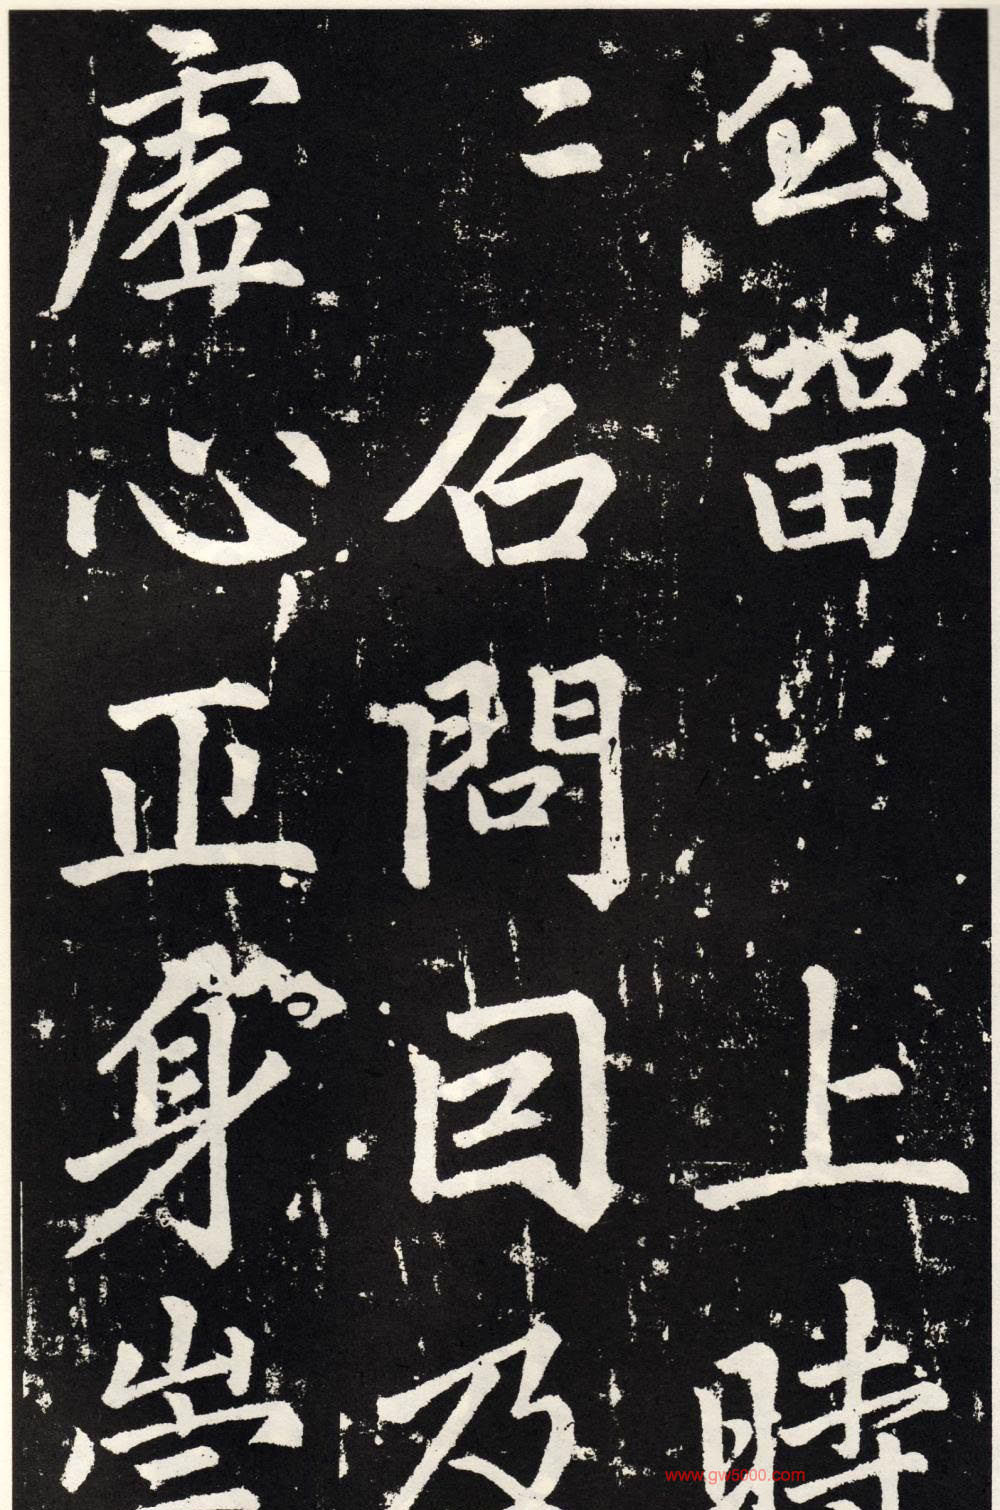 留上時
二召問曰乃
虛心正身崇
www.gw5000.com